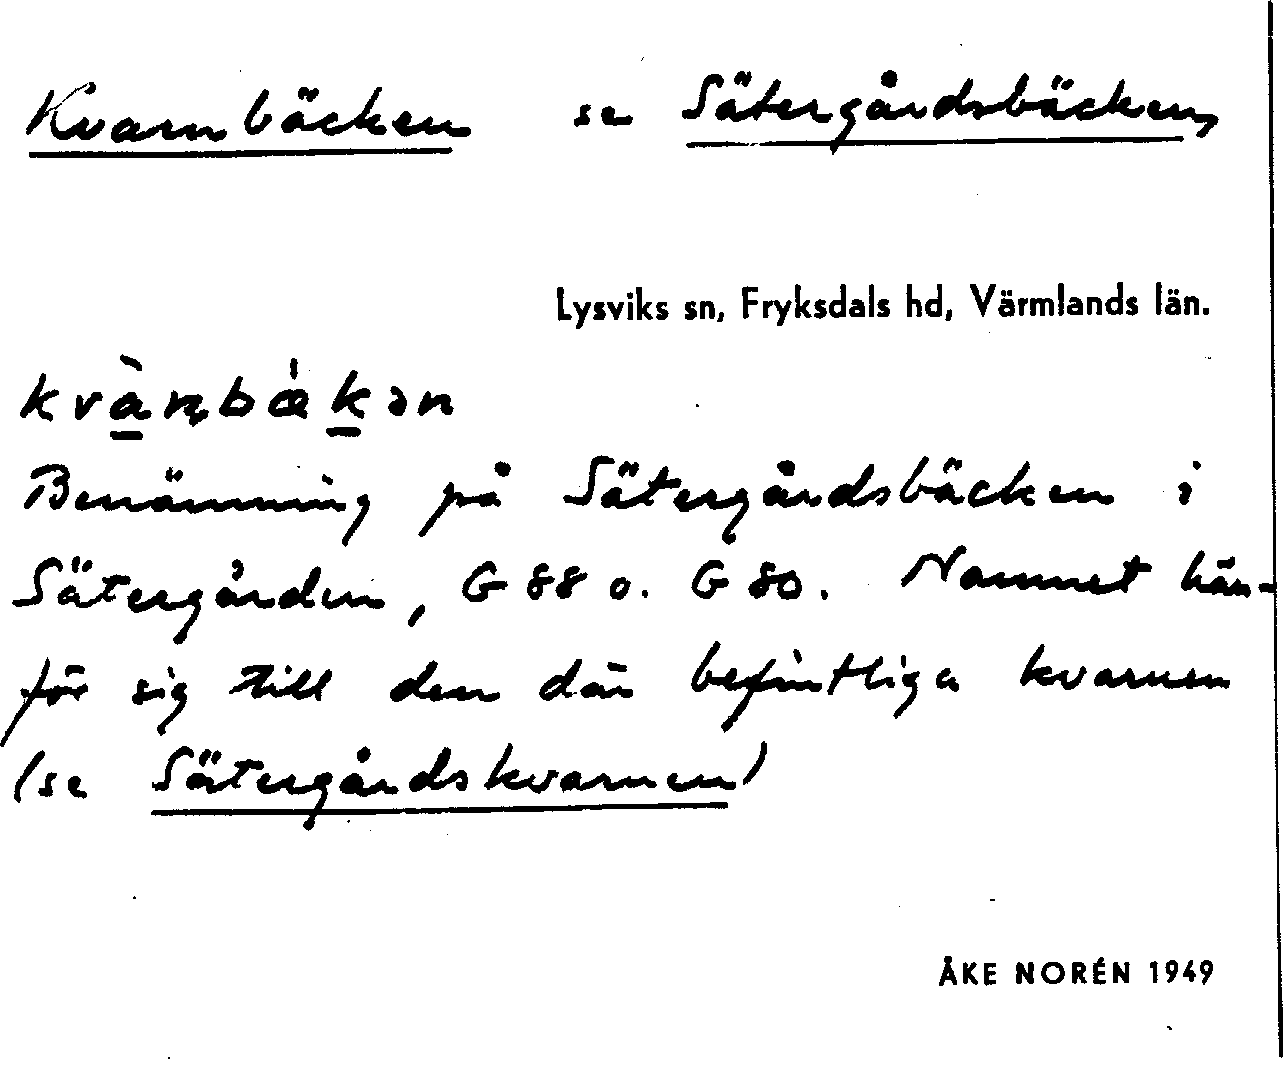 Kvarnbäcken se Sätergårdsbäcken,
Lysviks sn, Fryksdals hd, Värmlands län.
kvàṇbǽkən
Benämning på Sätergårdsbäcken i
Sätergården, G 88 o. G 80. Namnet hän-
för sig till den där befintliga kvarnen
(se Sätergårdskvarnen)
ÅKE NORÉN 1949